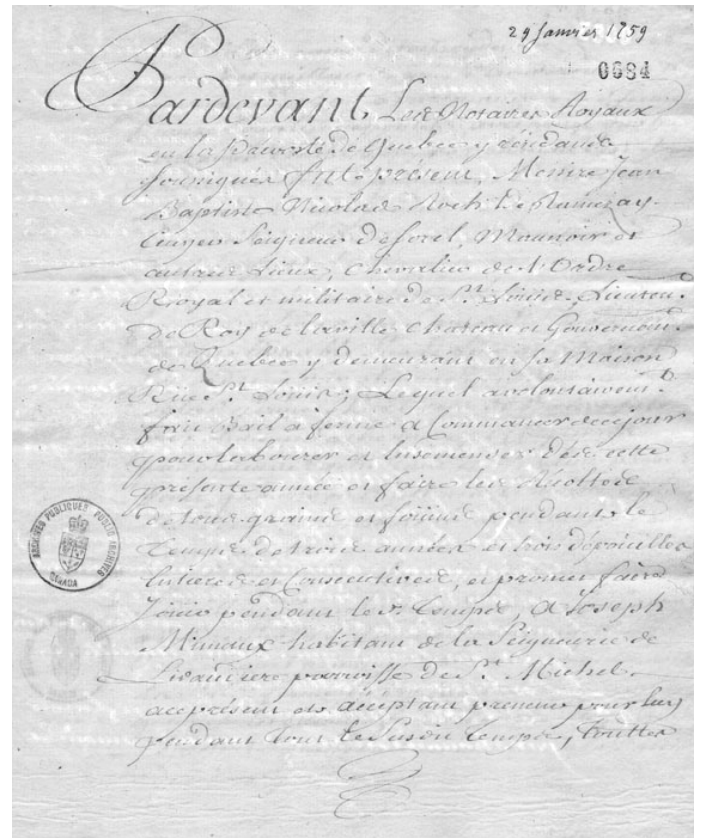 29 Janvier 1759
0684
Pardevant Les Notaires Royaux
en la prevosté de Quebec y residans
soussignés fut présent, Messire Jean
Baptiste Nicolas Roch de Ramezay
Ecuyer Seigneur de Sorel, Monnoir et
autres Lieux, Chevalier de l'Ordre
Royal et militaire de St. Loüis, Lieuten.
de Roy de la ville Chateau et Gouvernem.
de Quebec y demeurant en sa Maison
Rüe St. Loüis; Lequel a volontairem.
fait Bail à ferme a Commancer de ce jour
pour labourer et Ensemencer dès cette
présente année et faire les Recoltes
de tous grains et foüins pendant le
Temps de trois années et trois dépoüilles
Entieres et Consecutives, et promet faire
Joüir pendant led. Temps, a Joseph
habitant de la Seigneurie de
parroisse de St. Michel
a ce présent et acceptant preneur pour luy
pendant tout le Susdit temps, touttes
ARCHIVES PUBLIQUES PUBLIC ARCHIVES
CANADA